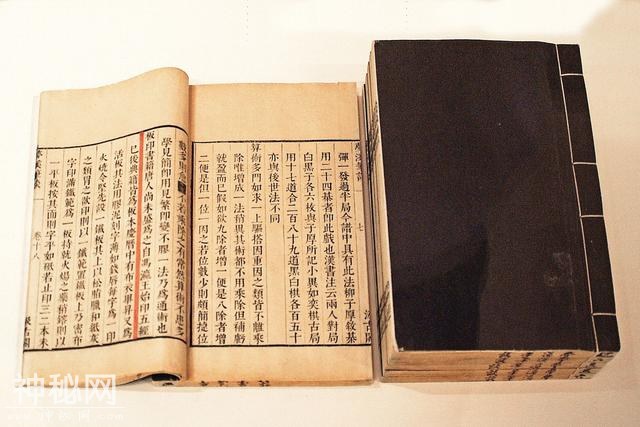 夢溪筆談
彈一發過半局今譜中具有此法柳子厚敘棊
用二十四棊者卽此戲也漢書注云兩人對局
白黑子各六枚與子厚所記小異如奕棋古局
用十七道合二百八十九道黑白棋各百五十
亦與後世法不同
算術多門如求一上驅搭因重因之類皆不離乘
除唯增成一法稍異其術都不用乘除但補虧
就盈而已假如欲九除者增一便是八除者增
二便是但一位一因之若位數少則頗簡捷位
數多則愈繁不若乘除之有常然算術不患多
學見簡卽用見繁卽變不膠一法乃爲通術也
板印書籍唐人尚未盛爲之自馮瀛王始印五經
已後典籍皆爲板本慶曆中有布衣畢昇又爲
活板其法用膠泥刻字薄如錢唇每字爲一印
火燒令堅先設一鐵板其上以松脂臘和紙灰
之類冒之欲印則以一鐵範置鐵板上乃密布
字印滿鐵範爲一板持就火煬之藥稍鎔則以
一平板按其面則字平如砥若止印三二本未
夢溪筆談 卷十八 汲古閣
神秘网